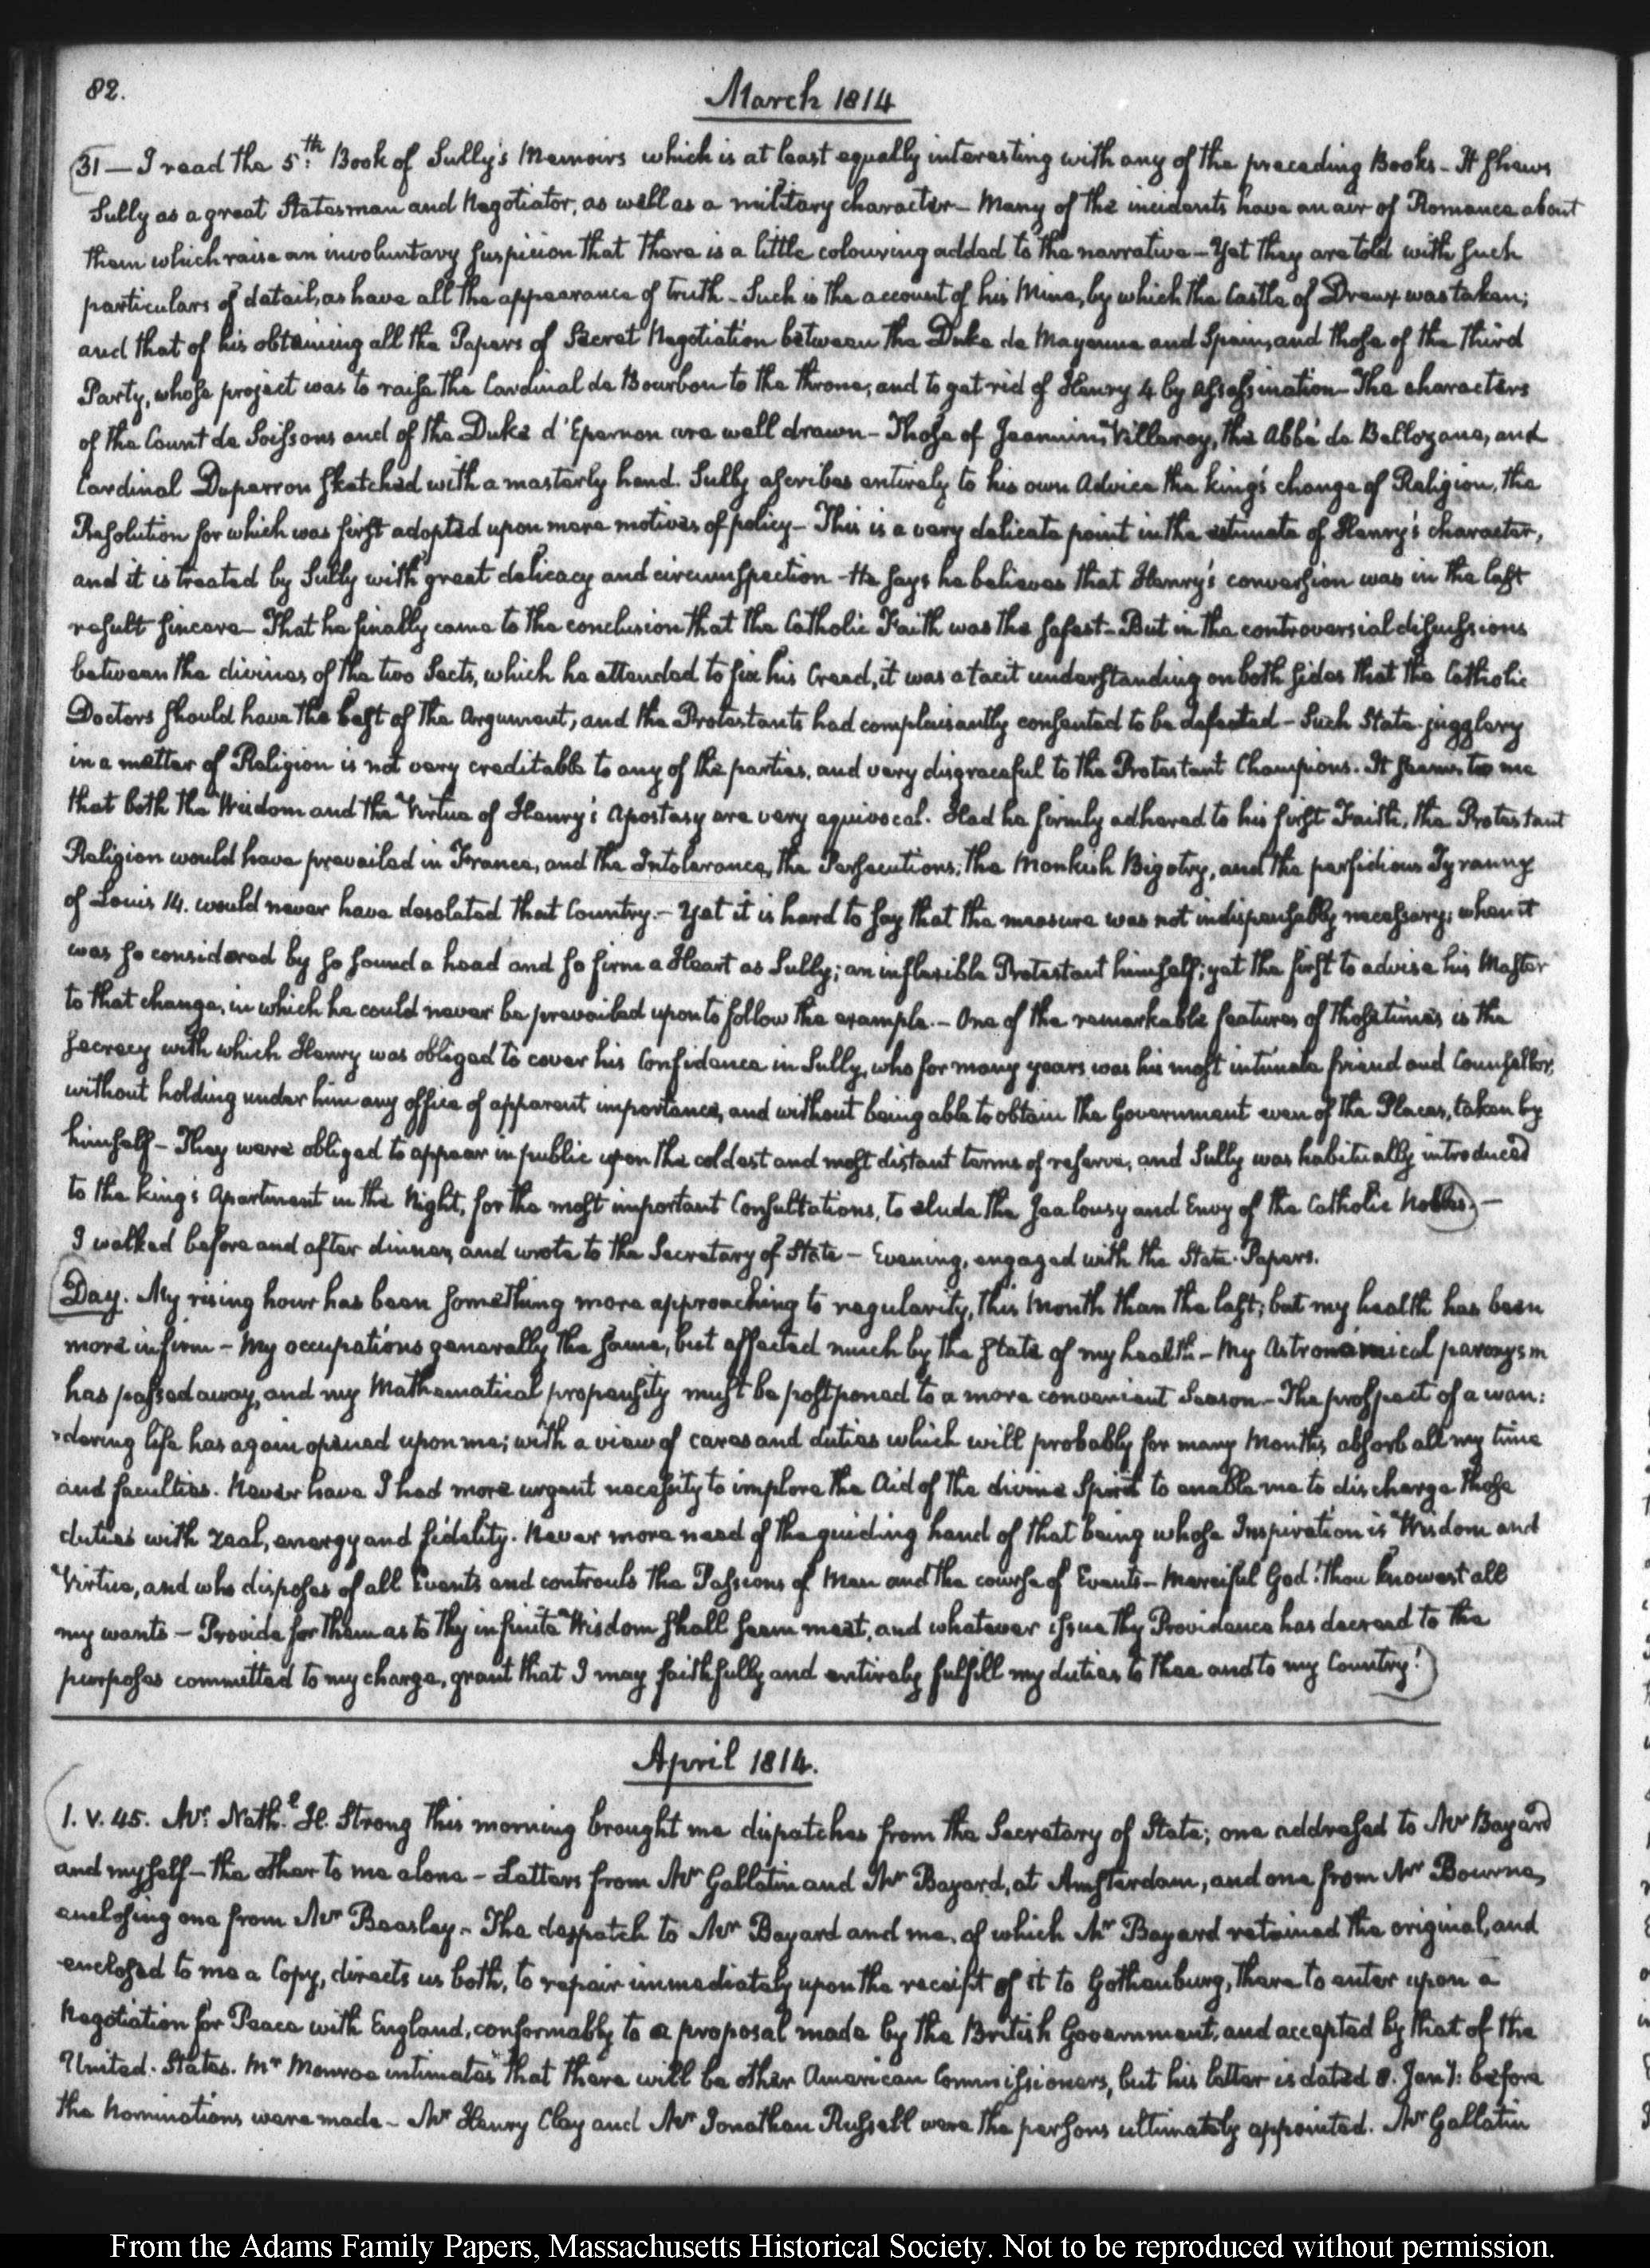 82.
March 1814
31 — I read the 5th. Book of Sully's Memoirs which is at least equally interesting with any of the preceding Books - It shews
Sully as a great Statesman and Negotiator, as well as a military character - Many of the incidents have an air of Romance about
them which raise an involuntary suspicion that there is a little colouring added to the narrative - Yet they are told with such
particulars of detail, as have all the appearance of truth - Such is the account of his Mine, by which the Castle of Dreux was taken;
and that of his obtaining all the Papers of Secret Negotiation between the Duke de Mayenne and Spain, and those of the third
Party, whose project was to raise the Cardinal de Bourbon to the throne; and to get rid of Henry 4 by assassination - The characters
of the Count de Soissons and of the Duke d'Epernon are well drawn - Those of Jeannin, Villeroy, the Abbé de Bellozane, and
Cardinal Duperron sketched with a masterly hand. Sully ascribes entirely to his own Advice the king's change of Religion, the
Resolution for which was first adopted upon mere motives of policy - This is a very delicate point in the estimate of Henry's character,
and it is treated by Sully with great delicacy and circumspection - He says he believes that Henry's conversion was in the last
result sincere - That he finally came to the conclusion that the Catholic Faith was the safest - But in the controversial discussions
between the divines of the two Sects, which he attended to fix his Creed, it was a tacit understanding on both sides that the Catholic
Doctors should have the best of the Argument, and the Protestants had complaisantly consented to be defeated - Such State-jugglery
in a matter of Religion is not very creditable to any of the parties, and very disgraceful to the Protestant Champions. It seems to me
that both the Wisdom and the Virtue of Henry's Apostasy are very equivocal. Had he firmly adhered to his first Faith, the Protestant
Religion would have prevailed in France, and the Intolerance, the Persecutions, the Monkish Bigotry, and the perfidious Tyranny
of Louis 14. would never have desolated that Country. - Yet it is hard to say that the measure was not indispensably necessary; when it
was so considered by so sound a head and so firm a Heart as Sully; an inflexible Protestant himself; yet the first to advise his Master
to that change, in which he could never be prevailed upon to follow the example. - One of the remarkable features of those times is the
secrecy with which Henry was obliged to cover his Confidence in Sully, who for many years was his most intimate friend and Counsellor,
without holding under him any office of apparent importance, and without being able to obtain the Government even of the Places, taken by
himself - They were obliged to appear in public upon the coldest and most distant terms of reserve, and Sully was habitually introduced
to the king's Apartment in the Night, for the most important Consultations, to elude the Jealousy and Envy of the Catholic Nobles. -
I walked before and after dinner, and wrote to the Secretary of State - Evening, engaged with the State-Papers.
Day. My rising hour has been something more approaching to regularity, this Month than the last; but my health has been
more infirm - My occupations generally the same, but affected much by the state of my health - My Astronomical paroxysm
has passed away, and my Mathematical propensity must be postponed to a more convenient Season. - The prospect of a wan:
:dering life has again opened upon me; with a view of cares and duties which will probably for many Months, absorb all my time
and faculties. Never have I had more urgent necessity to implore the Aid of the divine Spirit to enable me to discharge those
duties with zeal, energy and fidelity. Never more need of the guiding hand of that being whose Inspiration is Wisdom and
Virtue, and who disposes of all Events and controuls the Passions of Men and the course of Events - Merciful God! thou knowest all
my wants - Provide for them as to thy infinite Wisdom shall seem meet, and whatever issue thy Providence has decreed to the
purposes committed to my charge, grant that I may faithfully and entirely fulfill my duties to thee and to my Country!
April 1814.
1. V. 45. Mr. Nathl. H. Strong this morning brought me dispatches from the Secretary of State; one addressed to Mr Bayard
and myself - the other to me alone - Letters from Mr Gallatin and Mr Bayard, at Amsterdam, and one from Mr Bourne,
enclosing one from Mr Beasley. - The despatch to Mr Bayard and me, of which Mr Bayard retained the original, and
enclosed to me a Copy, directs us both, to repair immediately upon the receipt of it to Gothenburg, there to enter upon a
Negotiation for Peace with England, conformably to a proposal made by the British Government, and accepted by that of the
United-States. Mr Monroe intimates that there will be other American Commissioners, but his letter is dated 8. Jany: before
the Nominations were made - Mr Henry Clay and Mr Jonathan Russell were the persons ultimately appointed. Mr Gallatin
From the Adams Family Papers, Massachusetts Historical Society. Not to be reproduced without permission.